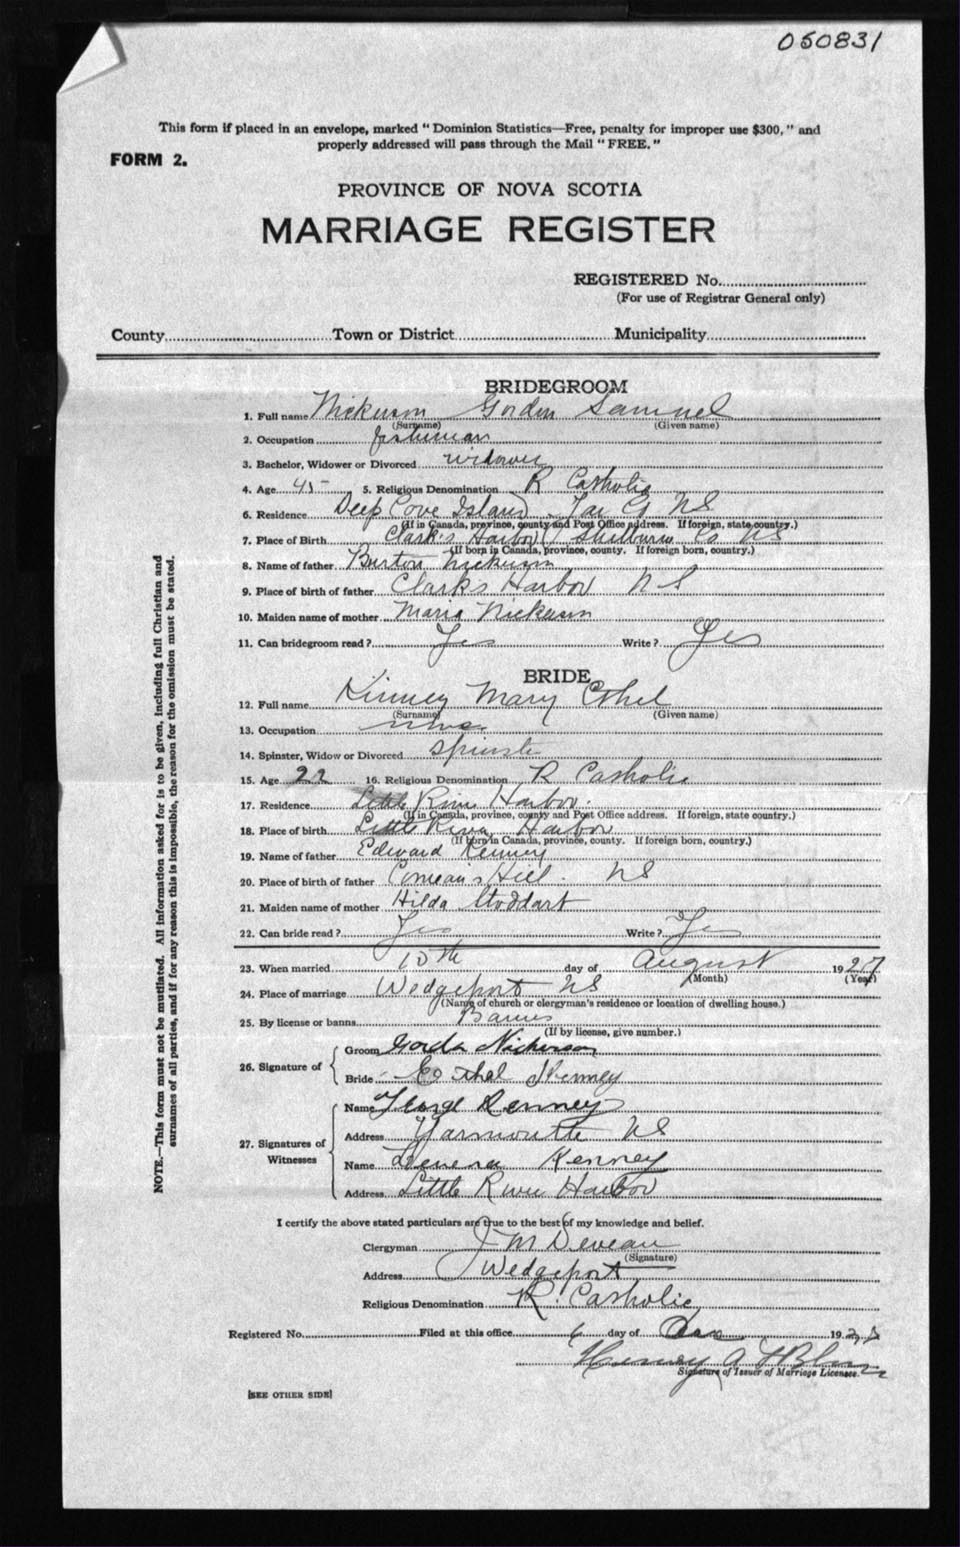 050831
This form if placed in an envelope, marked "Dominion Statistics—Free, penalty for improper use $300," and
properly addressed will pass through the Mail "FREE."
FORM 2.
PROVINCE OF NOVA SCOTIA
MARRIAGE REGISTER
REGISTERED No.
(For use of Registrar General only)
County Town or District Municipality
BRIDEGROOM
1. Full name Nickerson Gordon Samuel
(Surname) (Given name)
2. Occupation fisherman
3. Bachelor, Widower or Divorced widower
4. Age 45 5. Religious Denomination R Catholic
6. Residence Deep Cove Island Yar Co NS
(If in Canada, province, county and Post Office address. If foreign, state country.)
7. Place of Birth Clark's Harbor Shelburne Co NS
(If born in Canada, province, county. If foreign born, country.)
8. Name of father Burton Nickerson
9. Place of birth of father Clarks Harbor NS
10. Maiden name of mother Maria Nickerson
11. Can bridegroom read? Yes Write? Yes
BRIDE
12. Full name Kinney Mary Ethel
(Surname) (Given name)
13. Occupation none
14. Spinster, Widow or Divorced Spinster
15. Age 22 16. Religious Denomination R Catholic
17. Residence Little River Harbor
(If in Canada, province, county and Post Office address. If foreign, state country.)
18. Place of birth Little River Harbor
(If born in Canada, province, county. If foreign born, country.)
19. Name of father Edward Kenney
20. Place of birth of father Comeau's Hill NS
21. Maiden name of mother Hilda Stoddart
22. Can bride read? Yes Write? Yes
23. When married 10th day of August 1927
(Month) (Year)
24. Place of marriage Wedgeport NS
(Name of church or clergyman's residence or location of dwelling house.)
25. By license or banns Banns
(If by license, give number.)
26. Signature of
Groom Gordon Nickerson
Bride Ethel Kenney
27. Signatures of Witnesses
Name Kenney
Address Yarmouth NS
Name Kenney
Address Little River Harbor
I certify the above stated particulars are true to the best of my knowledge and belief.
Clergyman J M Deveau
(Signature)
Address Wedgeport
Religious Denomination R. Catholic
Registered No. Filed at this office 6 day of 192
Henry A
Signature of Issuer of Marriage Licenses.
[SEE OTHER SIDE]
NOTE.—This form must not be mutilated. All information asked for is to be given, including full Christian and
surnames of all parties, and if for any reason this is impossible, the reason for the omission must be stated.